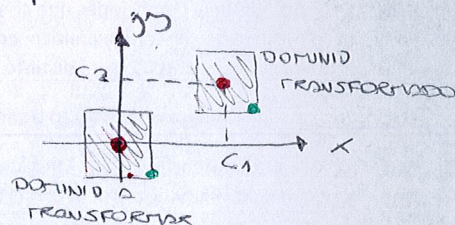 jy
DOMINIO
C2
TRANSFORMADO
C1
X
DOMINIO A
TRANSFORMAR